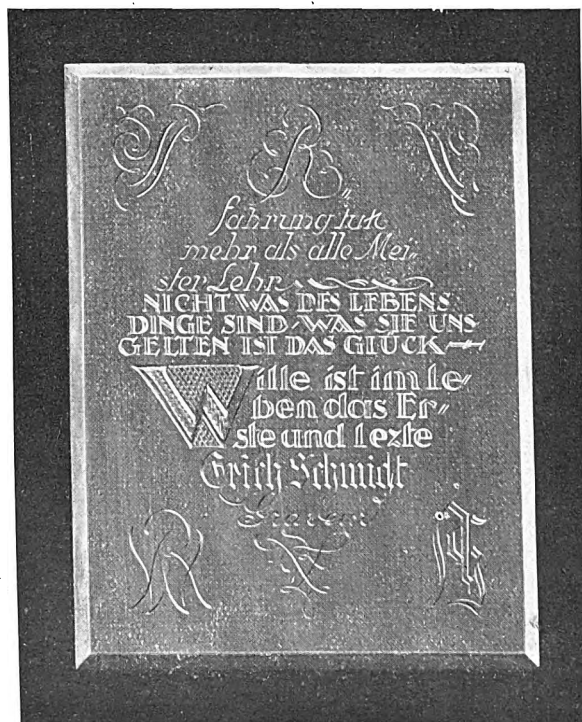 ER-
fahrung tut
mehr als alle Mei-
ster Lehr
NICHT WAS DES LEBENS
DINGE SIND WAS SIE UNS
GELTEN IST DAS GLÜCK
Wille ist im le-
ben das Er-
ste und lezte
Erich Schmidt
Graveur